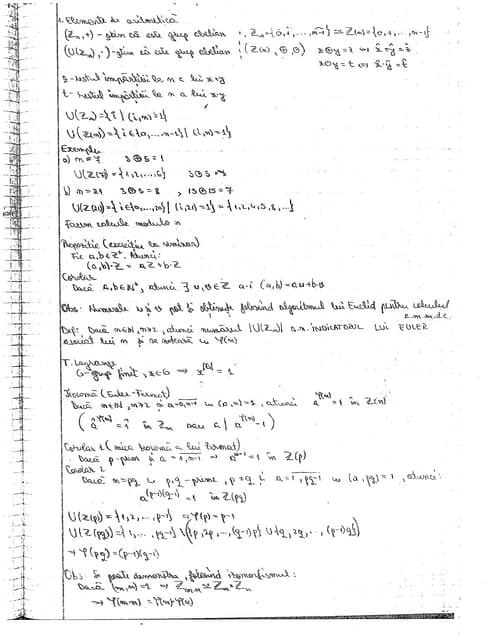 1. Elemente de aritmetică
(Zn,+) - știm că este grup abelian ; Zn={0̂,1̂,...,n-1̂} ≃ Z(n)={0,1,...,n-1}
(U(Zn),·) - știm că este grup abelian ; (Z(n),⊕,⊙) x⊕y=z ⇔ x̂+ŷ=ẑ
x⊙y=t ⇔ x̂·ŷ=t̂
z-restul împărțirii la n a lui x+y
t-restul împărțirii la n a lui x·y
U(Zn)={î | (i,n)=1}
U(Z(n))={i∈{0,...,n-1} | (i,n)=1}
Exemplu
a) n=7 3⊕5=1
U(Z(7))={1,2,...,6} 3⊙5=
b) n=21 3⊕5=8 , 13⊕15=7
U(Z(21))={i∈{0,...,20} | (i,21)=1} = {1,2,4,5,8,...}
Facem calcule modulo n
Propoziție (exercițiu la seminar)
Fie a,b∈Z*. Atunci:
(a,b)·Z = aZ+b·Z
Corolar
Dacă a,b∈N*, atunci ∃ u,v∈Z a.î (a,b)=au+bv
Obs: Numerele u și v pot fi obținute folosind algoritmul lui Euclid pentru calculul
c.m.m.d.c.
Def: Dacă n∈N, n≥2, atunci numărul |U(Zn)| s.n. INDICATORUL LUI EULER
asociat lui n și se notează cu φ(n)
T. Lagrange
G-grup finit, x∈G ⇒ x^|G| = 1
Teoremă (Euler-Fermat)
Dacă n∈N, n≥2 și a=0,n-1 cu (a,n)=1, atunci a^φ(n) = 1 în Z(n)
(â^φ(n) = 1̂ în Zn sau n | a^φ(n)-1)
Corolar 1 (mica teoremă a lui Fermat)
Dacă p-prim și a=1,p-1 ⇒ a^p-1 = 1 în Z(p)
Corolar 2
Dacă n=pq cu p,q-prime, p≠q și a=1,pq-1 cu (a,pq)=1, atunci:
a^(p-1)(q-1) = 1 în Z(pq)
U(Z(p))={1,2,...,p-1} ⇒ φ(p)=p-1
U(Z(pq))={1,...,pq-1} \ ({p,2p,...,(q-1)p} ∪ {q,2q,...,(p-1)q})
⇒ φ(pq)=(p-1)(q-1)
Obs: Se poate demonstra, folosind izomorfismul:
Dacă (m,n)=1 ⇒ Zmn ≃ Zm×Zn
⇒ φ(m·n) = φ(m)·φ(n)